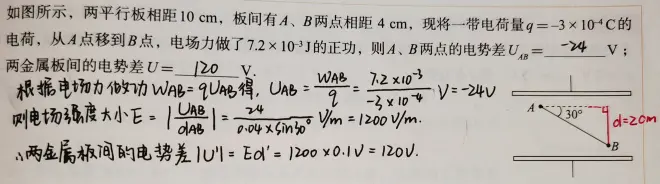 如图所示，两平行板相距10 cm，板间有A、B两点相距 4 cm，现将一带电荷量q=-3×10⁻⁴C的
电荷，从A点移到B点，电场力做了7.2×10⁻³J的正功，则A、B两点的电势差U_AB= -24 V；
两金属板间的电势差U= 120 V.
根据电场力做功 W_AB=qU_AB得，U_AB = W_AB/q = 7.2×10⁻³/-3×10⁻⁴ V=-24V
则电场强度大小E=|U_AB/d_AB|=24/0.04×sin30° V/m=1200V/m.
∴两金属板间的电势差|U'|=Ed'=1200×0.1V=120V.
A 30° d=2cm
B